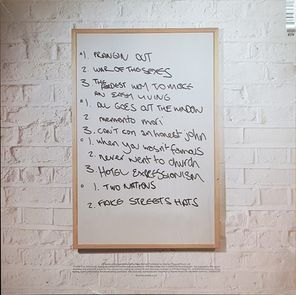 1. PRANGIN OUT
2. WAR OF THE SEXES
3. THE
HARDEST WAY TO MAKE
AN EASY LIVING
1. ALL GOES OUT THE WINDOW
2 memento mori
3. CAN'T CON an honest john
1. when you wasn't famous
2. never went to church
3. HOTEL EXPRESSIONISM
1. TWO NATIONS
2. FAKE STREETS HATS